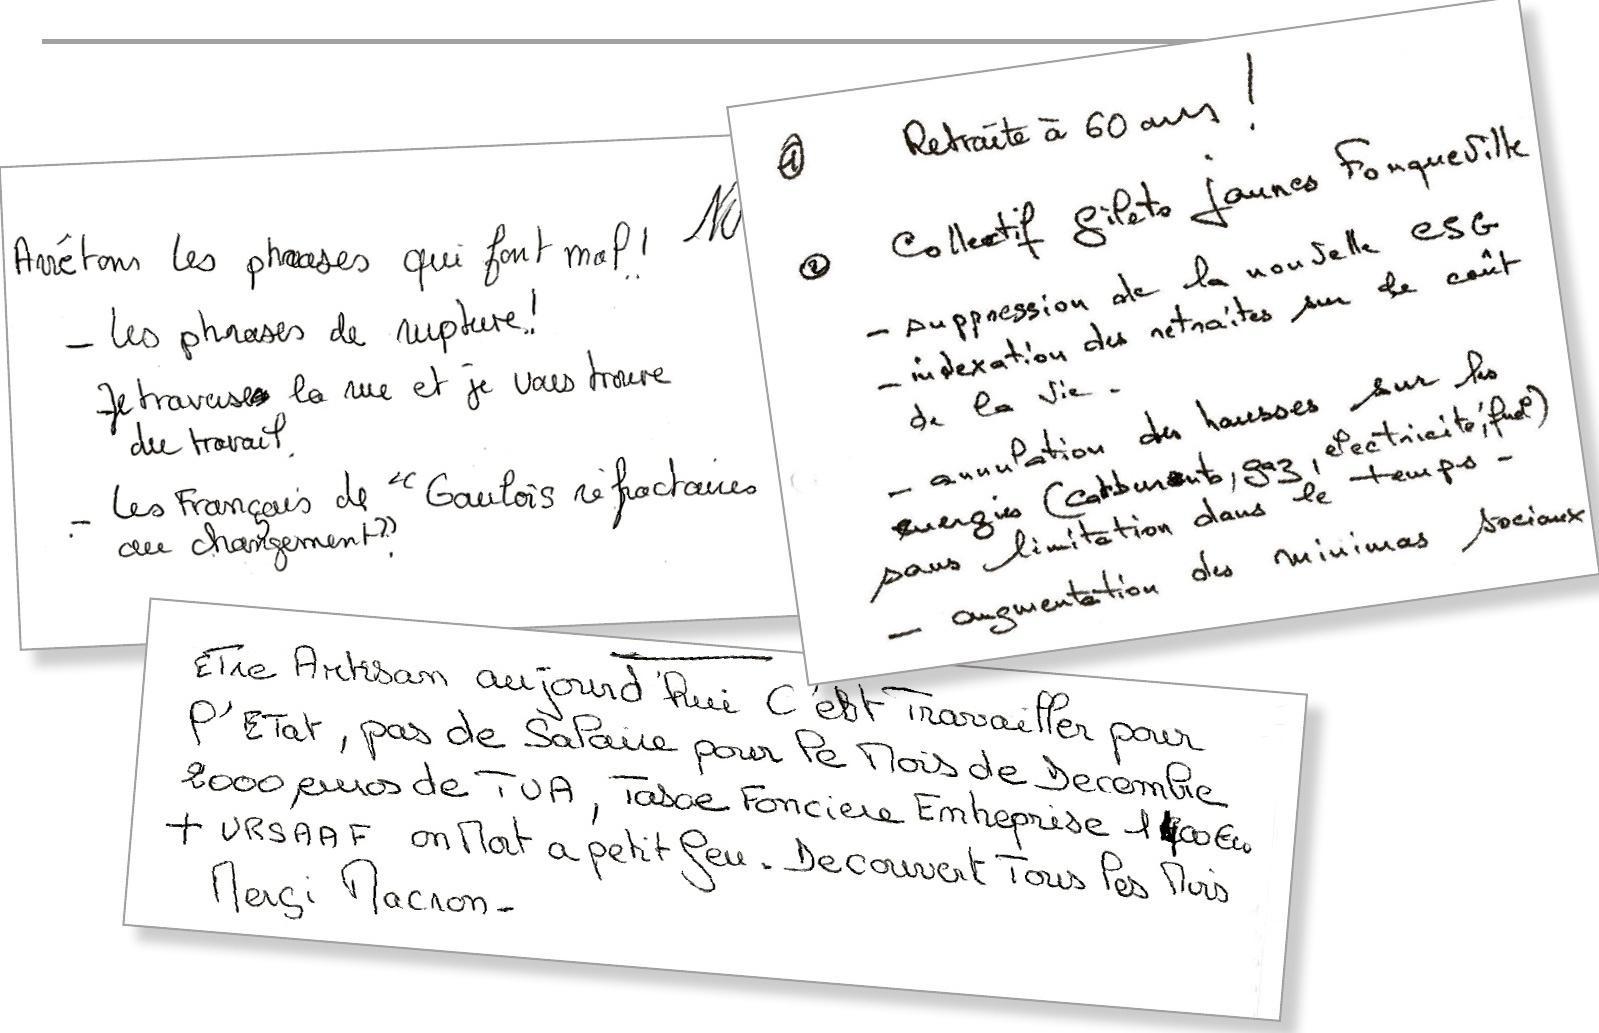 Arrêtons les phrases qui font mal!
- les phrases de rupture!
Je traverse la rue et je vous trouve
du travail.
- les Français de "Gaulois réfractaires
au changement"?
① Retraite à 60 ans !
② Collectif gilets jaunes Fouqueville
- suppression de la nouvelle CSG
- indexation des retraites sur le coût
de la vie.
- annulation des hausses sur les
energies (carburants, gaz, electricité, fuel)
sans limitation dans le temps -
- augmentation des minimas sociaux
ETre Artisan aujourd'hui C'est Travailler pour
l'ETat, pas de Salaire pour le Mois de Decembre
2000 euros de TVA, Taxe Fonciere Entreprise
+ URSAAF on Mort a petit feu. Decouvert Tous les Mois
Merçi Macron -